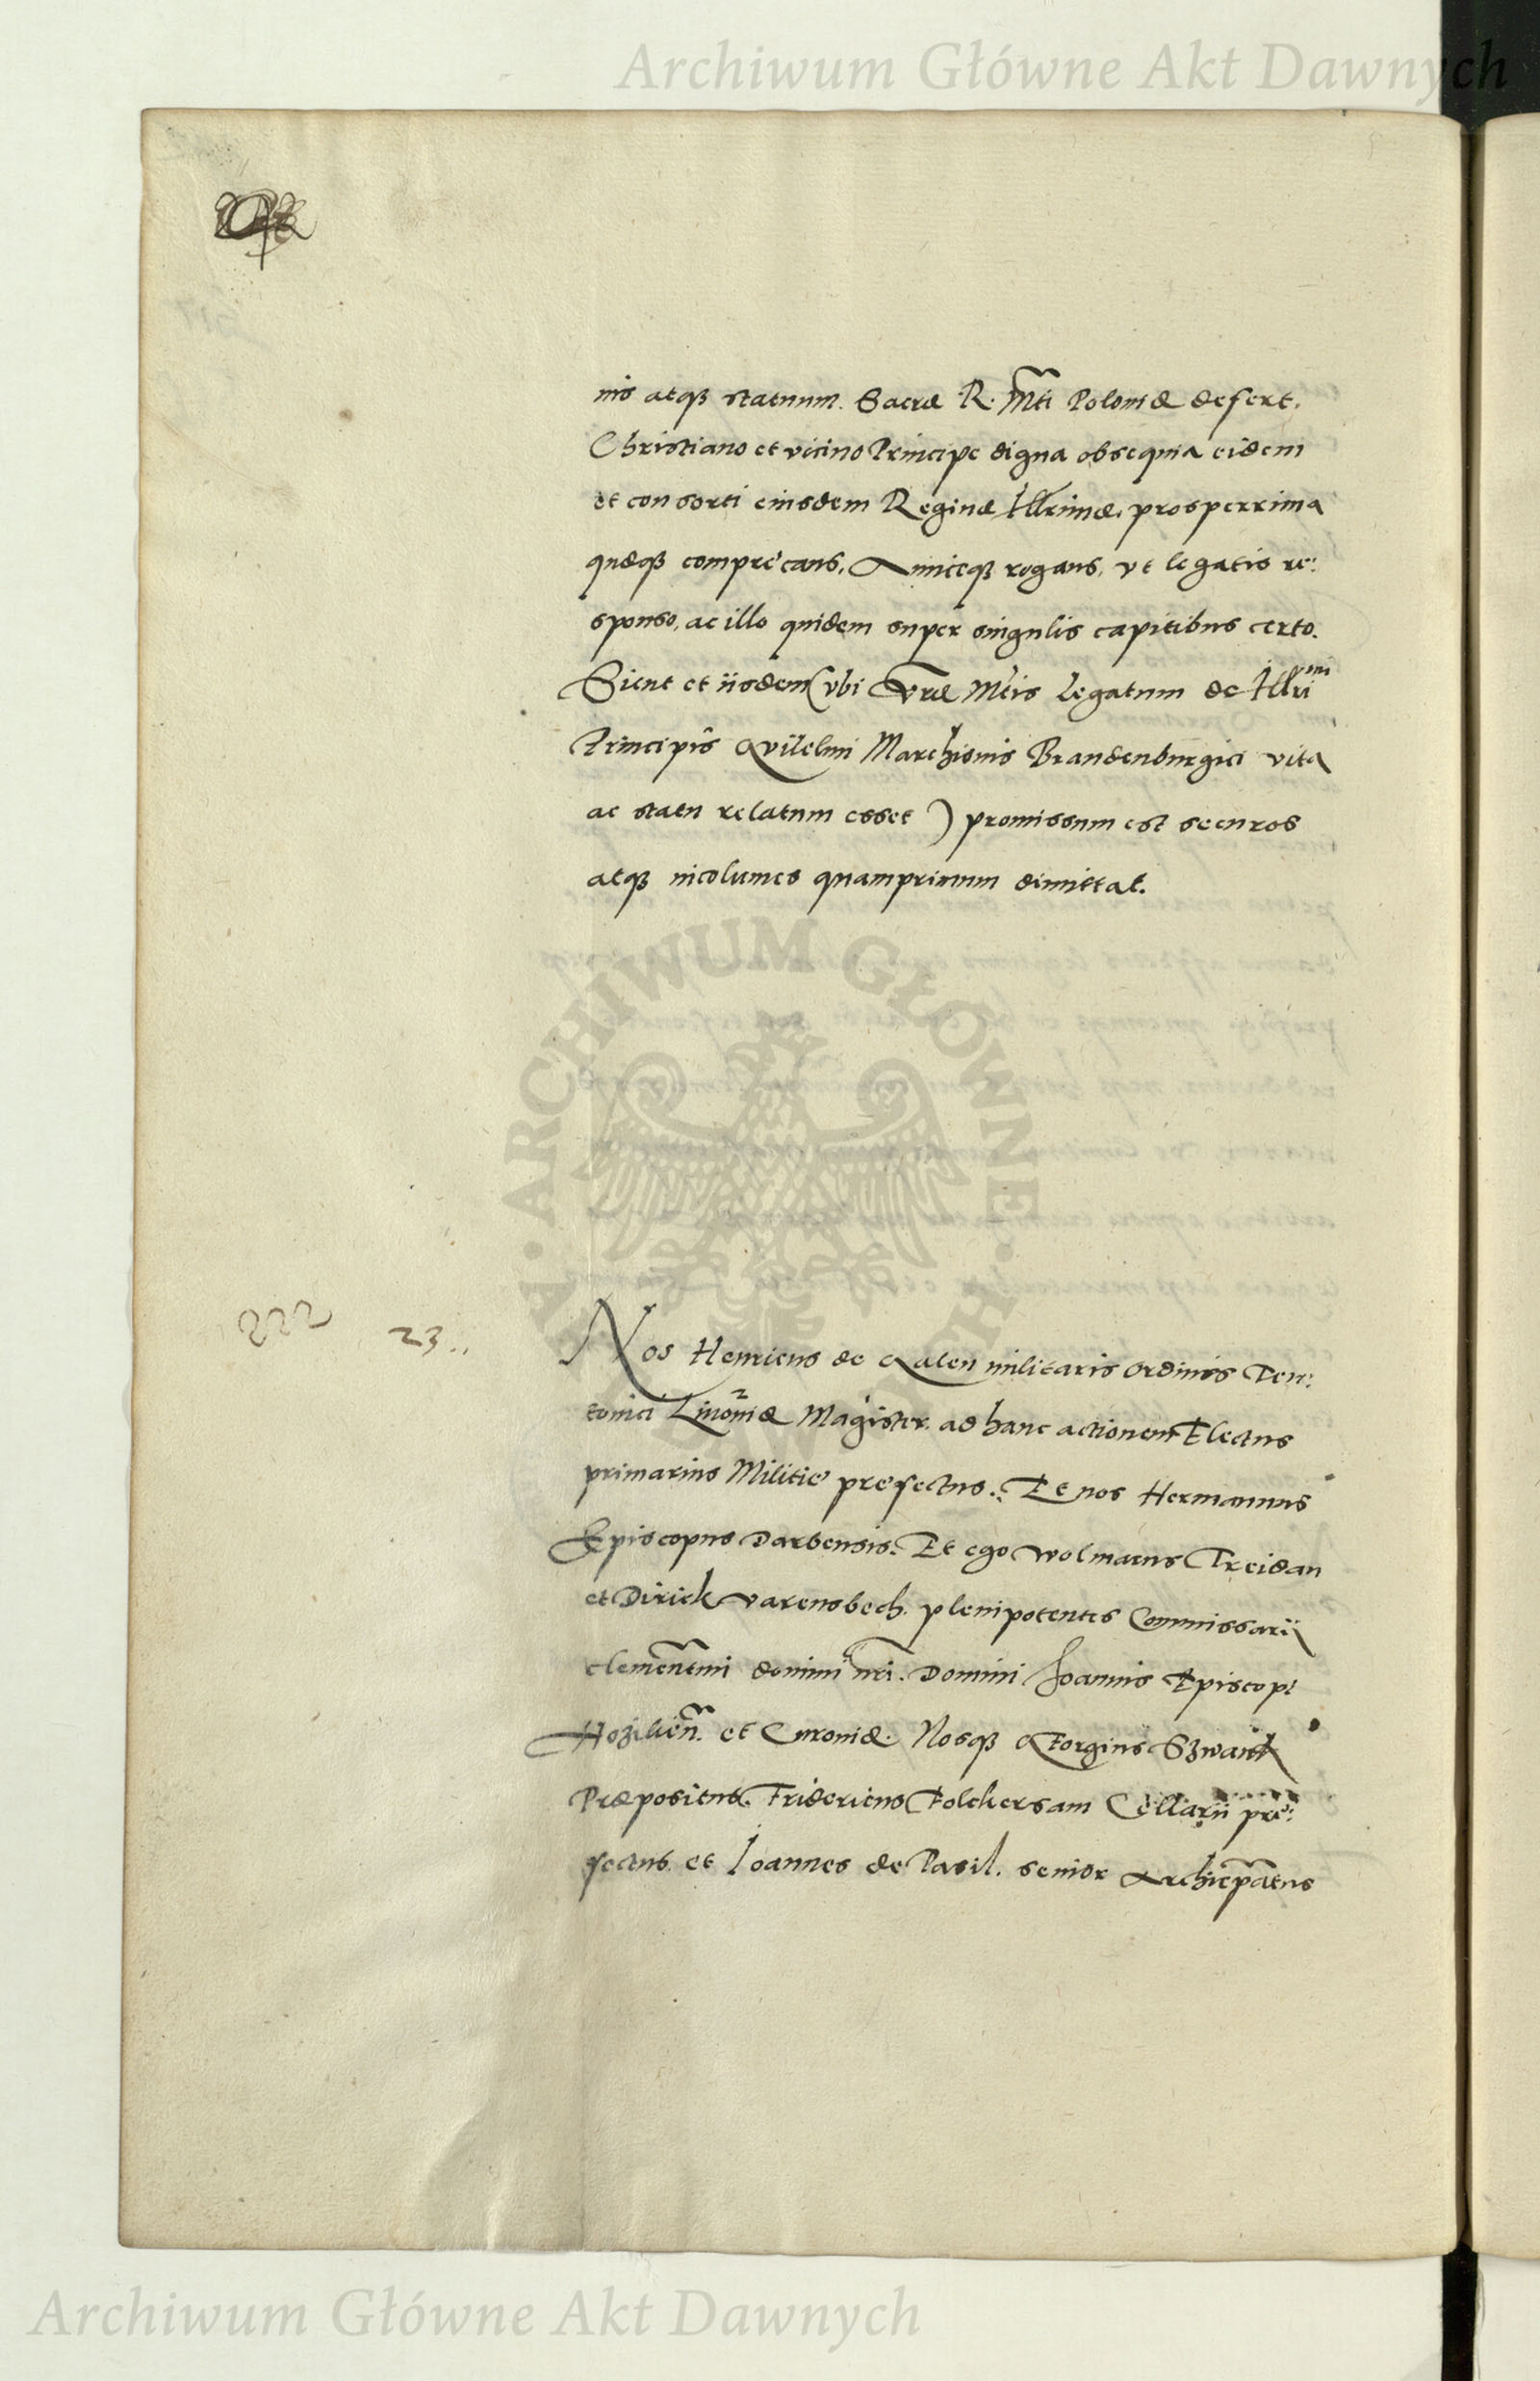 Archiwum Główne Akt Dawnych
nis atqꝫ statuum. Sacræ R. Mti Poloniæ defert,
Christiano et vicino Principe digna obsequia eidem
et consorti eiusdem Reginæ Illrimæ, prosperrima
quæqꝫ comprecans, Amiceqꝫ rogans, vt legatis re:
sponso, ac illo quidem super singulis capitibus certo.
Sicut et iisdem (vbi Vræ Mtis Legatum de Illrimi
Principis Guilelmi Marchionis Brandenburgici vita
ac statu relatum esset) promissum est securos
atqꝫ incolumes quamprimum dimittat.
ARCHIWUM GŁÓWNE AKT DAWNYCH
222 23..
Nos Henricus de Galen militaris Ordinis Teu:
tonici Livoniæ Magister. ad hanc actionem Electus
primarius Militie prefectus. Et nos Hermannus
Episcopus Darbensis. Et ego Wolmarus Treidan
et Dirick Varensbech. plenipotentes Commissarii
clementmi domini nri. Domini Joannis Episcopi
Hozilien. et Curoniæ. Nosqꝫ Georgius Szwant
Præpositus. Fridericus Folckersam Cellarii pre:
fectus. et Ioannes de Pasil. senior Archiepatus
Archiwum Główne Akt Dawnych